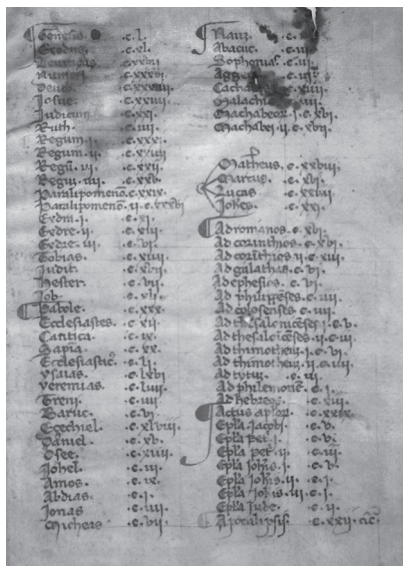 Genesis .c. l.
Exodus .c. xl.
Leuiticus .c. xxvii
Numeri .c. xxxvi
Deuto. .c. xxxiiii
Iosue .c. xxiiii.
Iudicum .c. xxi.
Ruth .c. iiii.
Regum .i. .c. xxxi.
Regum .ii. .c. xxiiii
Regum .iii. .c. xxii.
Regum .iiii. .c. xxv.
Paralipomenon .c. xxix.
Paralipomenon .ii. c. xxxvi
Esdre .i. .c. x.
Esdre .ii. .c. xiii
Esdre .iii. .c.
Tobias .c. xiiii.
Iudit .c. xvi.
Hester .c.
Iob .c. xlii.
Parabole .c. xxx.
Ecclesiastes .c. xii
Cantica .c. ix
Sapia .c. xx.
Ecclesiasticus .c. li.
Ysaias .c. lxvi
Yeremias .c. lii.
Treni .c.
Baruc .c. vi
Ezechiel .c. xlviii.
Daniel .c. xv.
Osee .c. xiiii
Iohel .c. iii.
Amos .c. ix.
Abdias .c. i.
Ionas .c. iiii
Micheas .c. vii
Naum .c.
Abacuc .c. iii
Sophonias .c. iii.
Aggeus
Malachi
Machabeor .i. c. xvi.
Machabei .ii. c. xvi.
Matheus .c. xxviii.
Marcus .c. xvi.
Lucas .c. xxiiii
Iohes .c. xxi.
Ad romanos .c. xvi.
Ad corinthios .c. xvi.
Ad corithios .ii. c. xiii.
Ad galathas .c. vi.
Ad ephesios .c. vi.
Ad philippeses .c. iiii.
Ad colosenses .c. iiii.
Ad thesaloniceses .i. c. v.
Ad thesaloiceses .ii. c. iii
Ad thimotheum .i. c. vi.
Ad thimotheum .ii. c. iiii.
Ad tytum .c. iii.
Ad philemone .c. i.
Ad hebreos .c. xiii.
Actus aplor .c. xxix.
Epla Iacobi .c. v.
Epla pet .i. .c. v.
Epla pet .ii. .c. iii.
Epla Iohis .i. .c. v.
Epla Iohis .ii. .c. i.
Epla Iohis .iii. c. i.
Epla Iude .c. ii.
Apocalipsis .c. xxii.